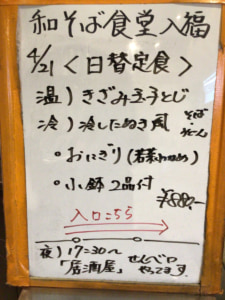 和そば食堂 入福
4/21 <日替定食>
温) きざみ玉子とじ
冷) 冷したぬき風
そば・うどん
・おにぎり(若菜わかめ)
・小鉢2品付
¥880,-
入口こちら
夜) 17:30〜
「居酒屋」 せんべロ
やってます